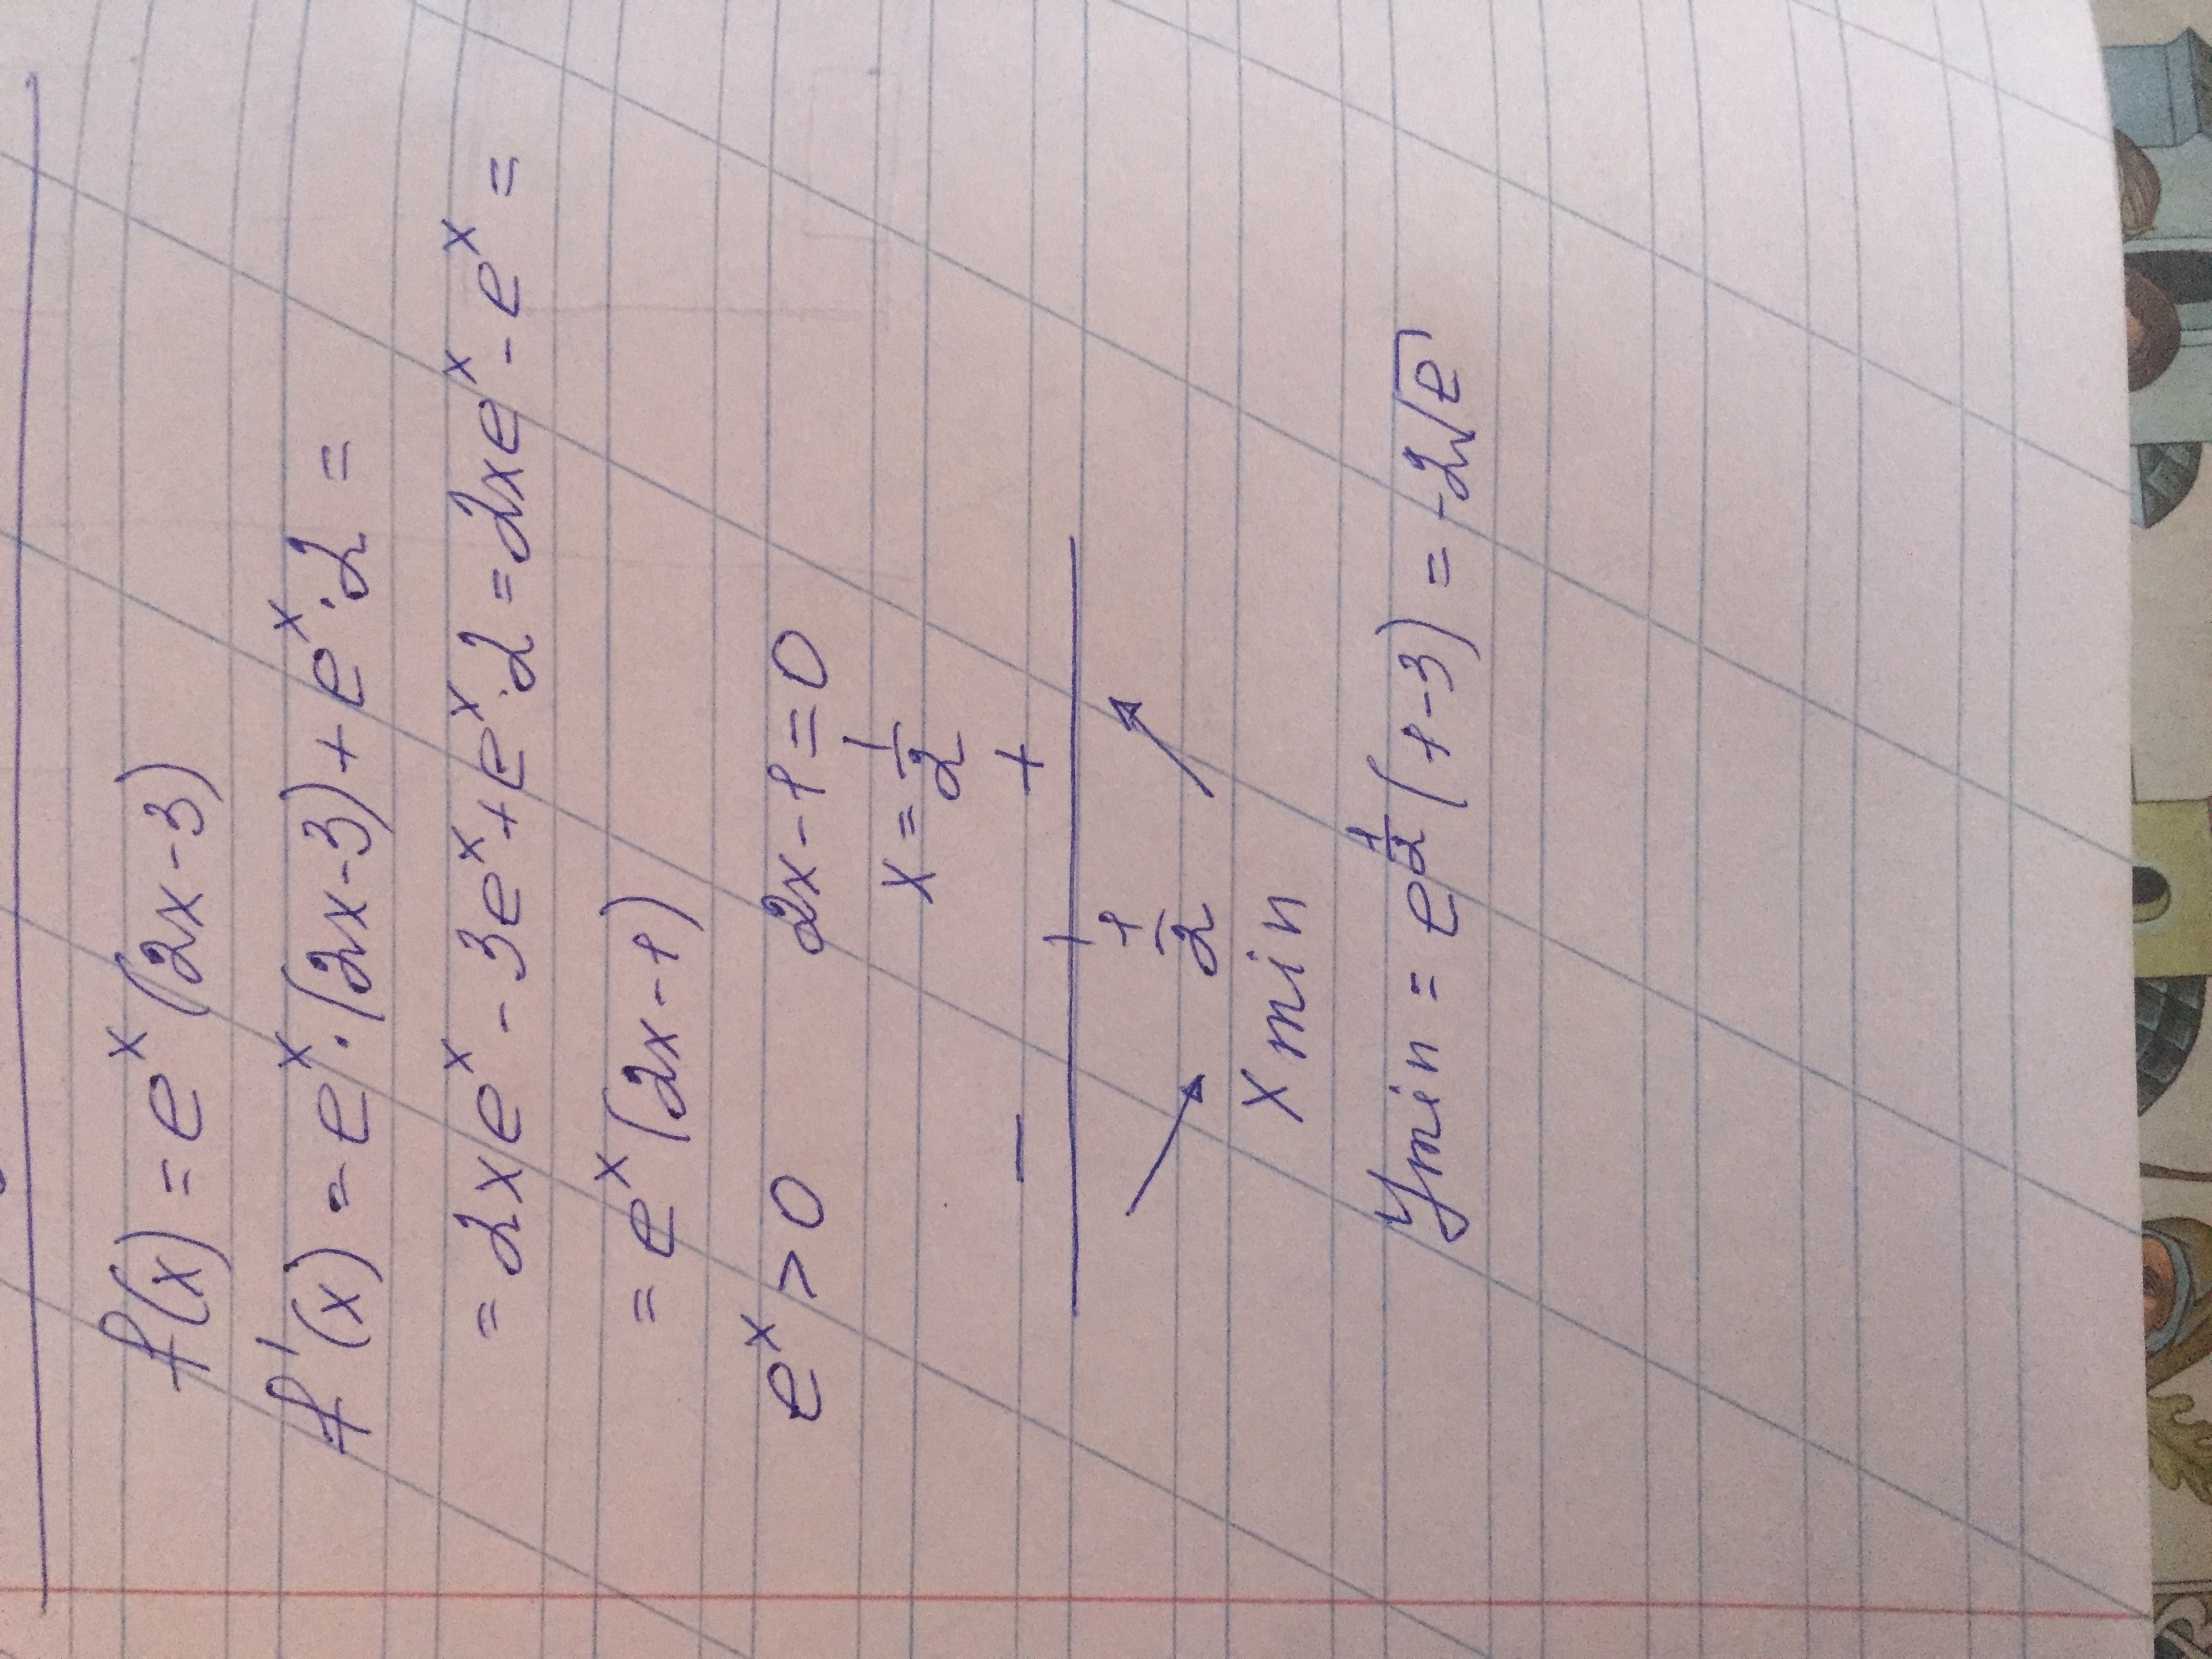 f(x) = eˣ(2x-3)
f'(x) = eˣ·(2x-3)+eˣ·2 =
= 2xeˣ - 3eˣ+eˣ·2 = 2xeˣ - eˣ =
= eˣ(2x-1)
eˣ > 0 2x-1=0
x = 1/2
- +
1/2
x min
y min = e^(1/2) (1-3) = -2√e